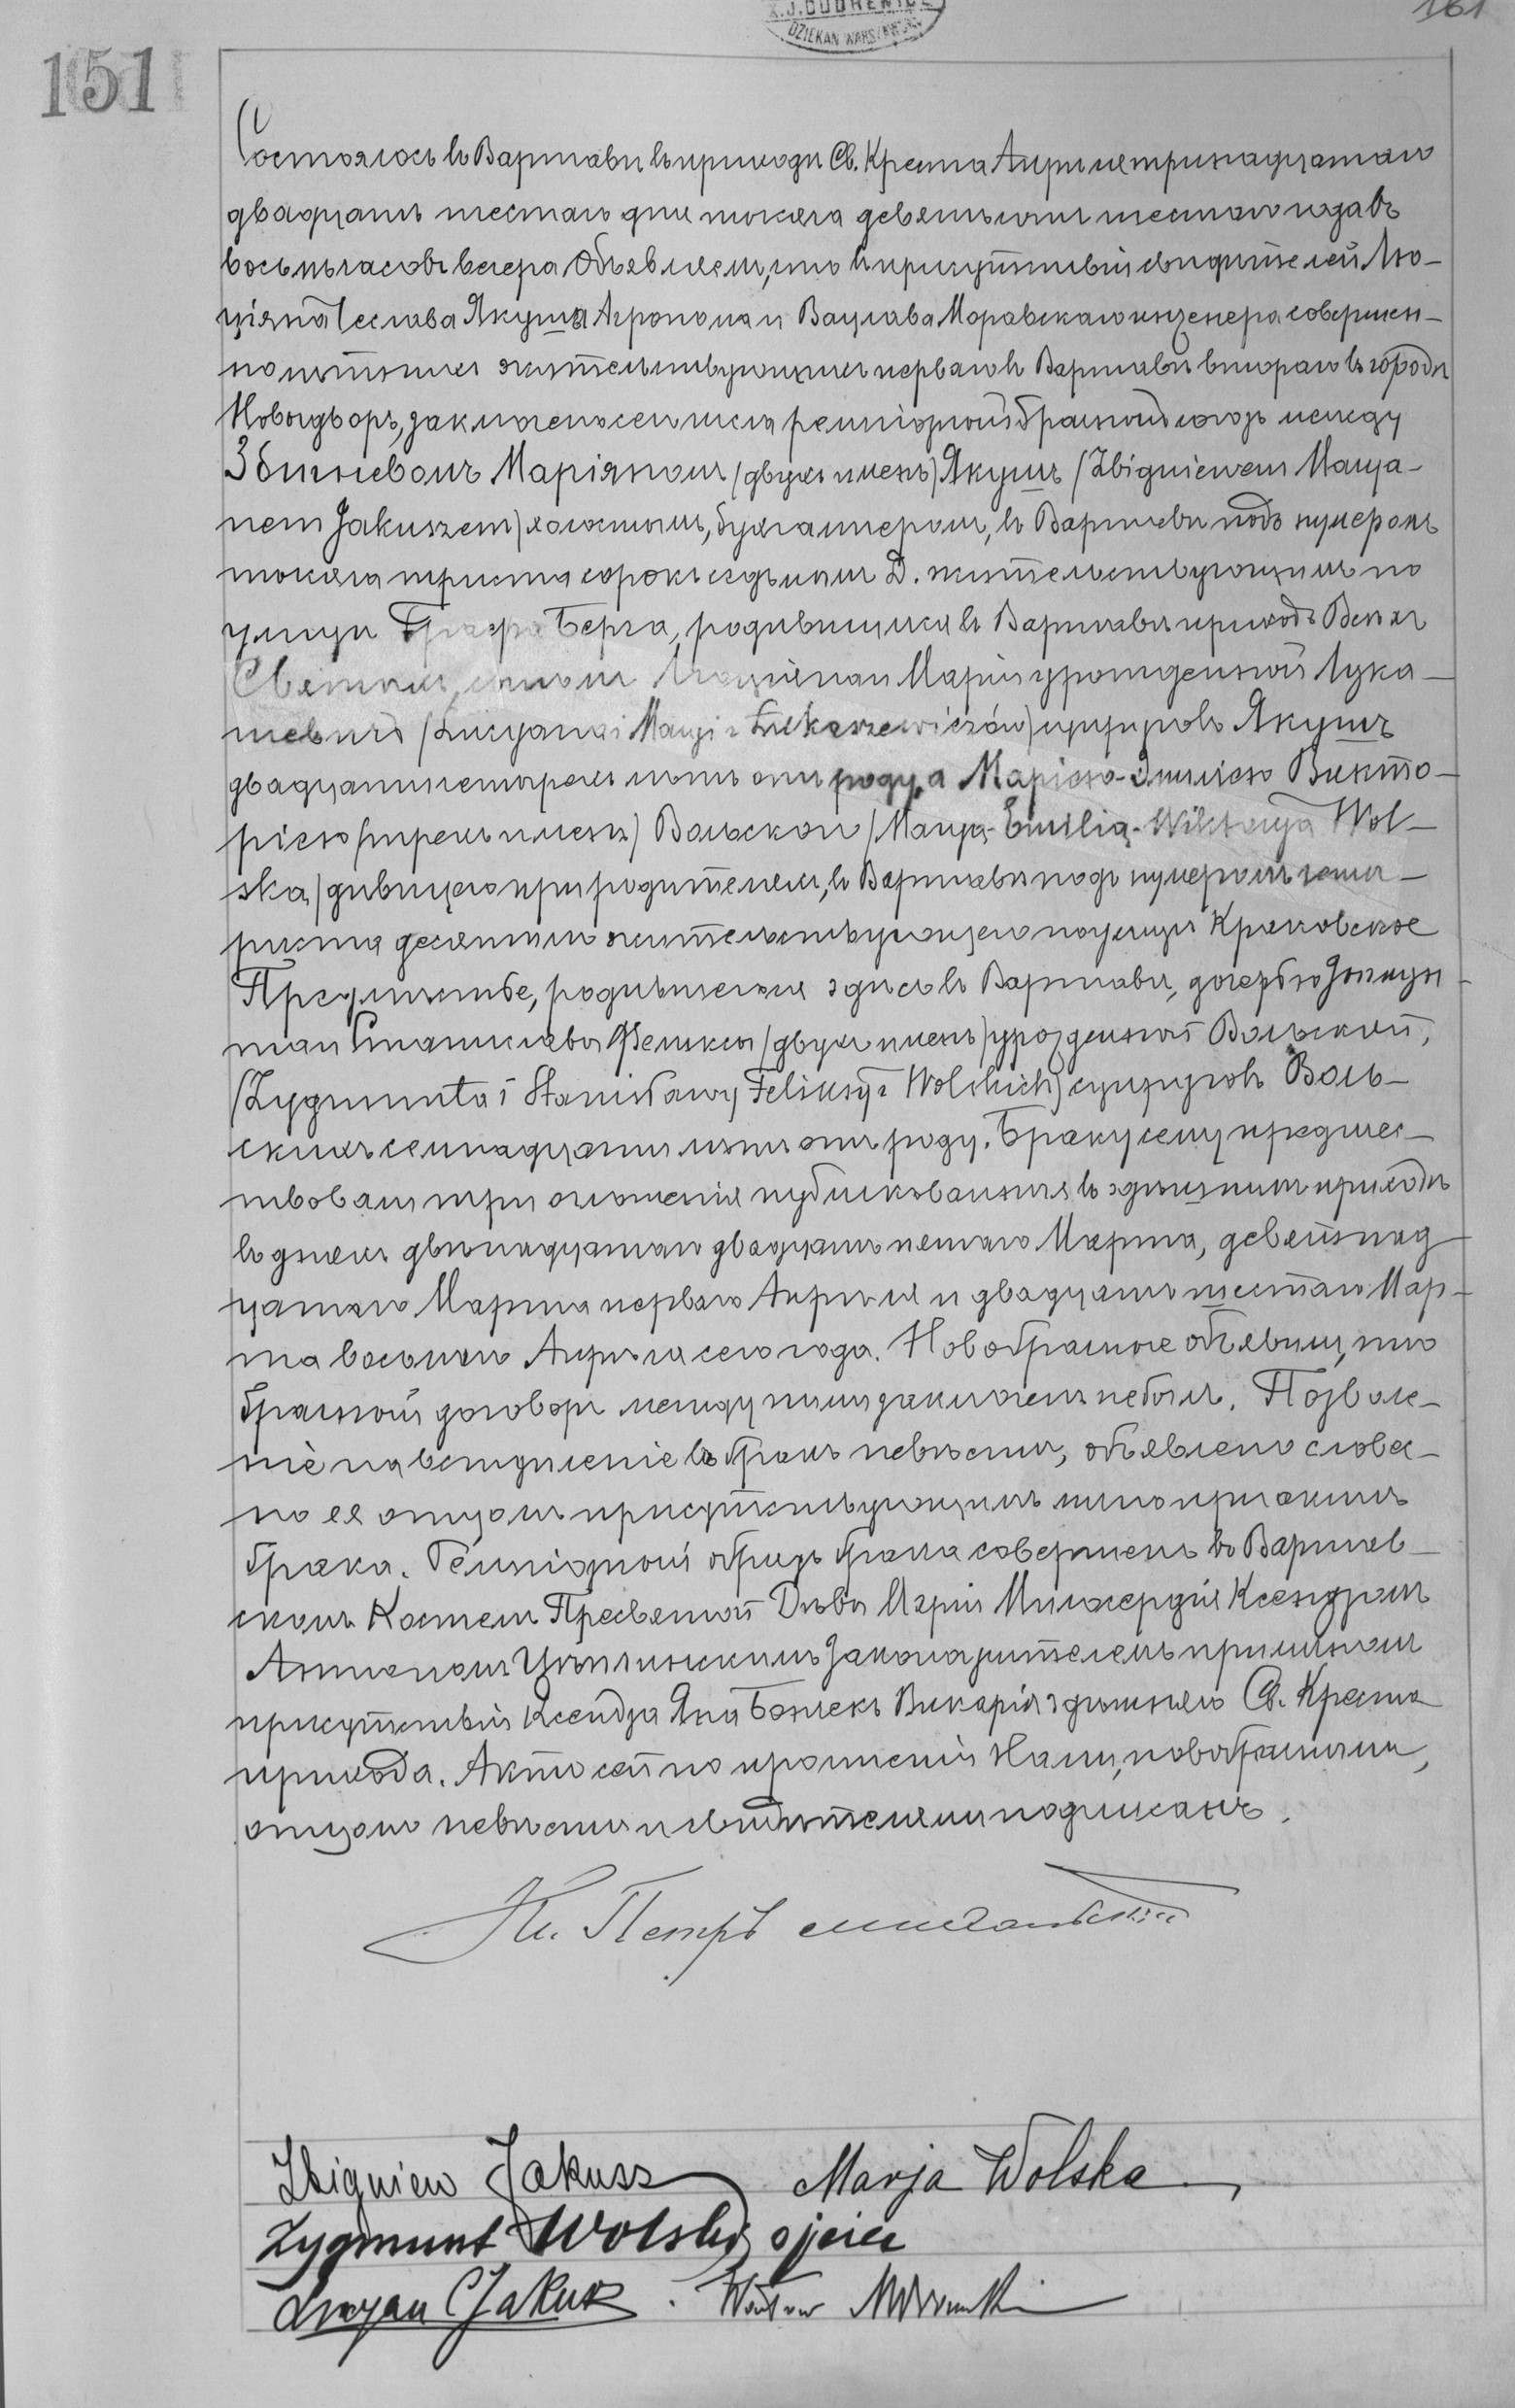 X.J.DUDREWICZ
DZIEKAN WARSZAWSKI
161
151
Состоялось въ Варшавѣ въ приходѣ Св. Креста Апрѣля тринадцатаго
двадцать шестаго дня тысяча девятьсотъ шестаго года въ
восемь часовъ вечера Объявляемъ, что въ присутствіи свидѣтелей Лю-
ціяна Чеслава Якуша Агронома и Вацлава Моравскаго инженера совершен-
нолѣтнихъ жительствующихъ перваго въ Варшавѣ втораго въ городѣ
Новыдворъ, заключенъ сего числа религіозный брачный союзъ между
Збигневомъ Маріяномъ /двухъ именъ/ Якушъ /Zbigniewem Marya-
nem Jakuszem/ холостымъ, бухгалтеромъ, въ Варшавѣ подъ нумеромъ
тысяча триста сорокъ седьмымъ D. жительствующимъ по
улицѣ Графа Берга, родившимся въ Варшавѣ приходѣ Всѣхъ
Святыхъ, сыномъ Люціяна и Маріи урожденной Лука-
шевичъ /Lucyana i Maryi z Łukaszewiczów/ супруговъ Якушъ
двадцати четырехъ лѣтъ отъ роду, а Маріею-Эмиліею Викто-
ріею /трехъ именъ/ Вольскою /Maryą-Emilią-Wiktoryą Wol-
ską/ дѣвицею при родителяхъ, въ Варшавѣ подъ нумеромъ четы-
риста десятымъ жительствующею по улицѣ Краковское
Предмѣстье, родившеюся здѣсь въ Варшавѣ, дочерью Зыгмун-
та и Станиславы Феликсы /двухъ именъ/ урожденной Вольской,
/Zygmunta i Stanisławy Feliksy z Wolskich/ супруговъ Воль-
скихъ семнадцати лѣтъ отъ роду. Браку сему предшес-
твовали три оглашенія публикованныя въ здѣшнемъ приходѣ
въ дняхъ двѣнадцатаго двадцать пятаго Марта, девятнад-
цатаго Марта перваго Апрѣля и двадцать шестаго Мар-
та восьмаго Апрѣля сего года. Новобрачные объявили, что
брачный договоръ между ними заключенъ не былъ. Позволе-
ніе на вступленіе въ бракъ невѣстѣ, объявлено словес-
но ея отцомъ присутствующимъ лично при актѣ
брака. Религіозный обрядъ брака совершенъ въ Варшав-
скомъ Костелѣ Пресвятой Дѣвы Маріи Милосердія Ксендзомъ
Антономъ Цѣплинскимъ Законоучителемъ при личномъ
присутствіи Ксендза Яна Божекъ Викарія здѣшняго Св. Креста
прихода. Актъ сей по прочтеніи Нами, новобрачными,
отцомъ невѣсты и свидѣтелями подписанъ.
Кс. Петръ
Zbigniew Jakusz Marja Wolska
Zygmunt Wolski, ojciec
Lucyan Cz Jakusz. Wacław Morawski